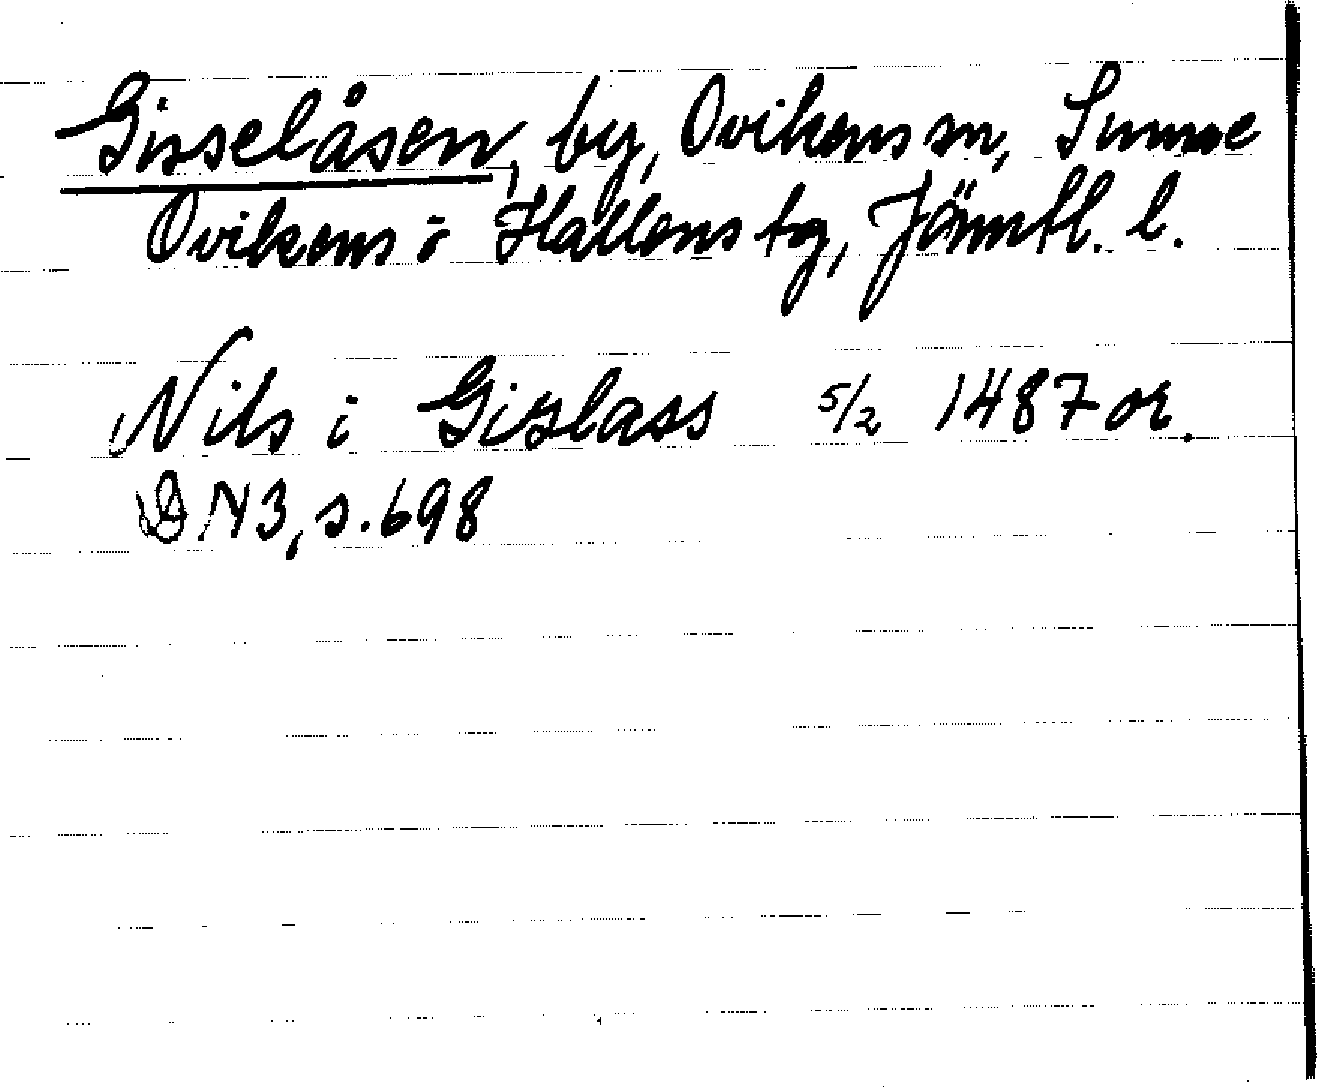 Gisselåsen, by, Ovikens sn, Sunne
Ovikens o Hallens tg, Jämtl. l.
Nils i Gislass 5/2 1487 or.
DN3, s. 698